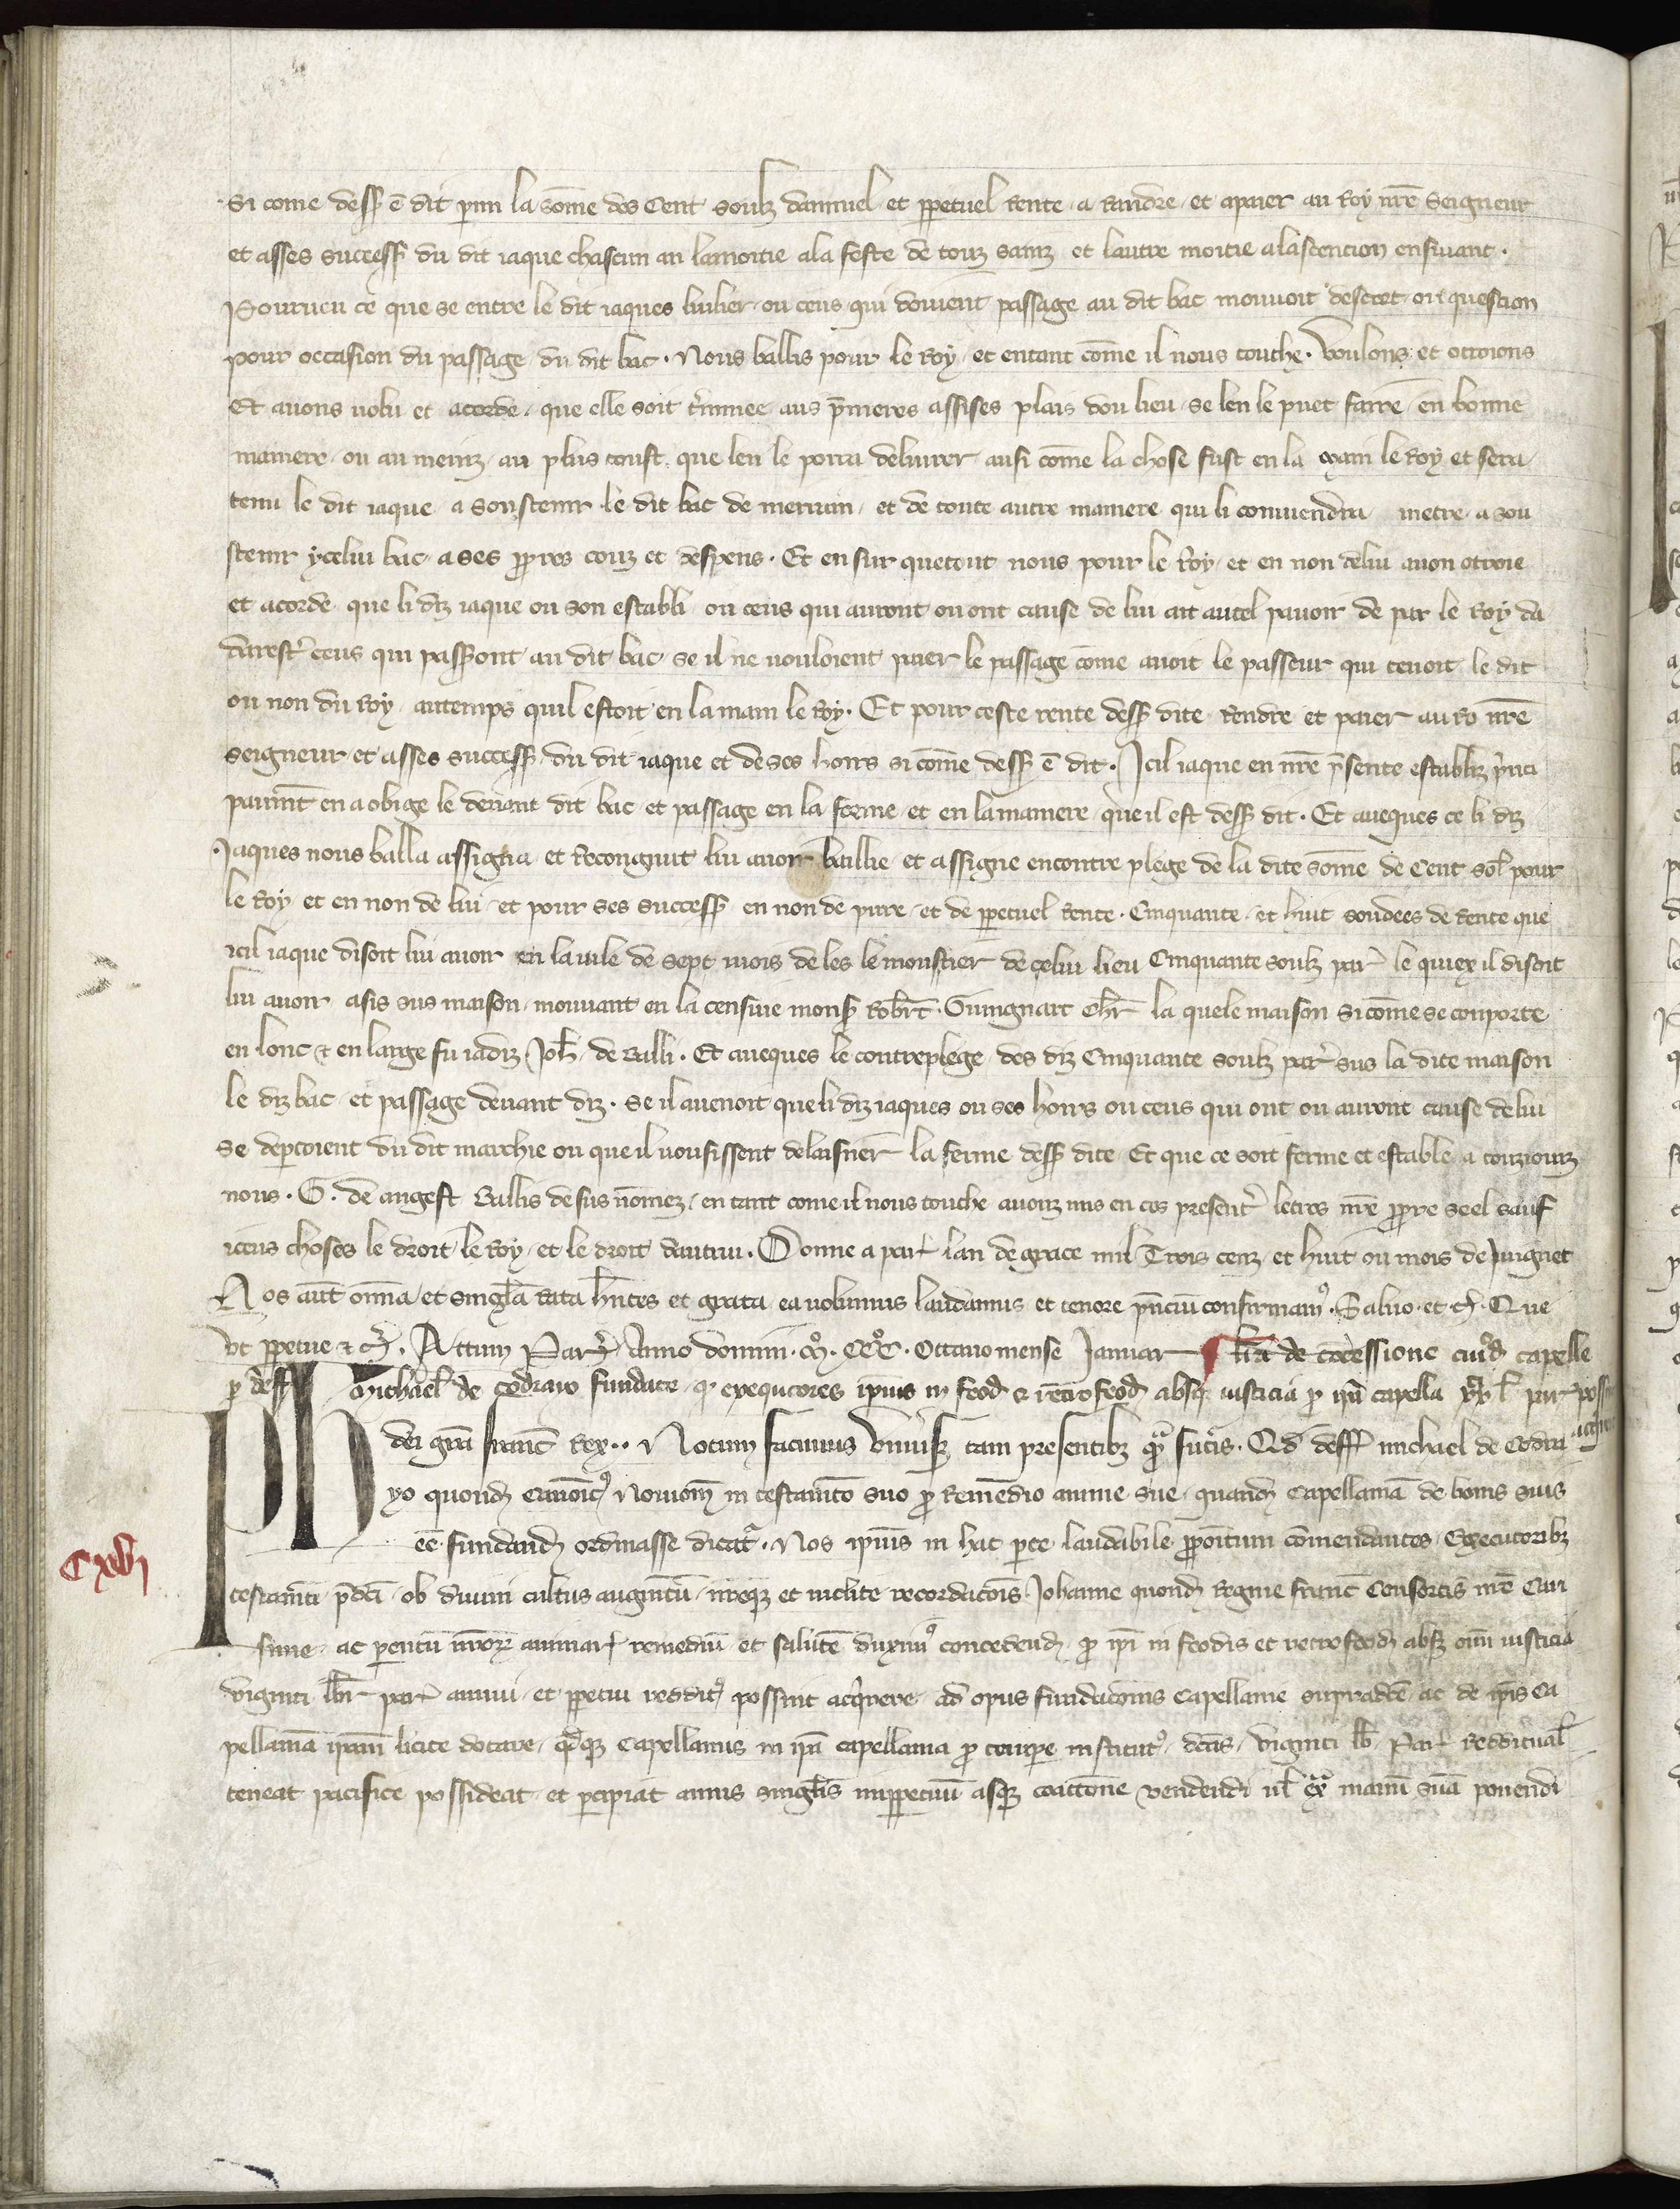 si come dess̄ ē dit p̄mi la sōme des Cent soulz dannuel et ꝑpetuel rente a randre et a paier au Roy nr̄e Seigneur
et asses success̄ du dit iaque chascun an lamoitie ala feste de touz sainz et lautre moitie alascencion ensivant.
Pourueu ce que se entre le dit iaques luilier ou ceus qui doiuent passage au dit bac mouuoit descort ou question
pour occasion du passage du dit bac. Nous ballis pour le Roy et entant cōme il nous touche. Voulons et ottroions
Et auons uolu et acorde que elle soit t̄minee aus p̄mieres assises plais dou lieu se len le puet faire en bonne
maniere ou au meinz au plus toust que len le porra deliurer ausi cōme la chose fust en la main le Roy et sera
tenu le dit iaque a soustenir le dit bac de merrien et de toute autre maniere qui li conuiendra metre a sou
stenir ycelui bac a ses ꝓpres couz et despens. Et en sur quetout nous pour le Roy et en non deliu auon otroie
et acorde que li diz iaque ou son establi ou ceus qui auront ou ont cause de lui ait autel pauoir de par le Roy da
darest̄ ceus qui passeront au dit bac se il ne uouloient paier le passage cōme auoit le passeur qui tenoit le dit
ou non du Roy autemps quil estoit en la main le Roy. Et pour ceste rente dess̄ dite rendre et paier au Ro nr̄e
seigneur et asses success̄ du dit iaque et de ses hoirs si cōme dess̄ ē dit. Icil iaque en nr̄e p̄sente establiz p̄nci
paumt̄ en a obige le deuant dit bac et passage en la forme et en la maniere que il est dess̄ dit. Et aueques ce li diz
Iaques nous balla assigna et recongnut lui auoir baillie et assigne encontre plege de la dite sōme de Cent sol̄ pour
le Roy et en non de lui et pour ses success̄ en non de pure et de ꝑpetuel rente. Cinquante et huit soudees de rente que
icil iaque disoit lui auoir en la uile de sept mois de les le moustier de celui lieu Cinquante soulz par̄ le quiex il disoit
lui auoir asis sus maison mouuant en la censiue mons̄ Rob̄rt Guingnart ch̄r la quele maison si cōme se conporte
en lonc & en large fu iadiz Joh̄ de Balli. Et aueques le contreplege des diz Cinquante soulz par̄ sus la dite maison
le diz bac et passage deuant diz. se il auenoit que li diz iaques ou ses hoirs ou ceus qui ont ou auront cause de lui
se deꝑtoient du dit marchie ou que il uousissent delaisner la ferme dess̄ dite Et que ce soit ferme et estable a touziourz
nous. G. de angest Ballis desus nōmez en tant come il nous touche auonz mis en ces present̄ letres nr̄e ꝓpre seel sauf
iceus choses le droit le Roy et le droit dautrui. Donne a par̄ lan de grace mil Trois cenz et huit ou mois de Juignet
Nos aut̄ om̄ia et singl̄a rata h̄ntes et grata ea uolumus laudamus et tenore p̄nciū confirmam⁹. Saluo et c̄. Que
ut ꝑpetue & c̄. Actum Par̄ Anno domini. M°. CCC°. Octauo mense Januar̄ lr̄a de cōcessione cuiꝰd̄ capelle
p deff̄ Michael̄ de Codraio fundate. qd̄ exequtores ipius in feod̄ & retrofeod̄ absq̨ iusticia p ip̄a capella xx l̄ par̄ possint
acquirere
Ph̄ dei gr̄a Franc̄ Rex.. Notum facimus Vniu̇s̄ tam presentibꝫ q̄ futur̄is. Qd̄ deff̄ michael de Codra
yo quond̄ Canonic⁹ Nouiom̄ in testamēto suo ꝓ remedio anime sue quand̄ Capellaniā de bonis suis
eē fundand̄ ordinasse dicat̄. Nos ipīus in hac parte laudabile ꝓpoitum cōmendantes Executoribꝫ
testamēti p̄dc̄i ob diuini cultus augmt̄ū nr̄eqꝫ et inclite recordaciōis Johanne quond̄ Regine Franc̄ Consortis nr̄e Cari
sime ac parentū nr̄orꝫ animar̄ remediū et salutē duxim⁹ concedend̄ ꝓ ip̄i in feodis et retrofeod̄ absqꝫ om̄i iusticia
viginti libr̄ par̄ annui et ꝑpetui reddit⁹ possint acq̄rere ad opus fundaciōnis Capellanie supradc̄e ac de ip̄is Ca
pellaniā ip̄am licite dotare. qd̄qꝫ Capellanus in ip̄a capellania ꝓ tempore institut⁹ dc̄as viginti lib̄ Par̄ redditual̄
teneat pacifice possideat et percipiat annis singl̄is imꝑpetuū asqꝫ coactiōne vendendi ul̄ ex̄ manū suā ponendi
Cxvii